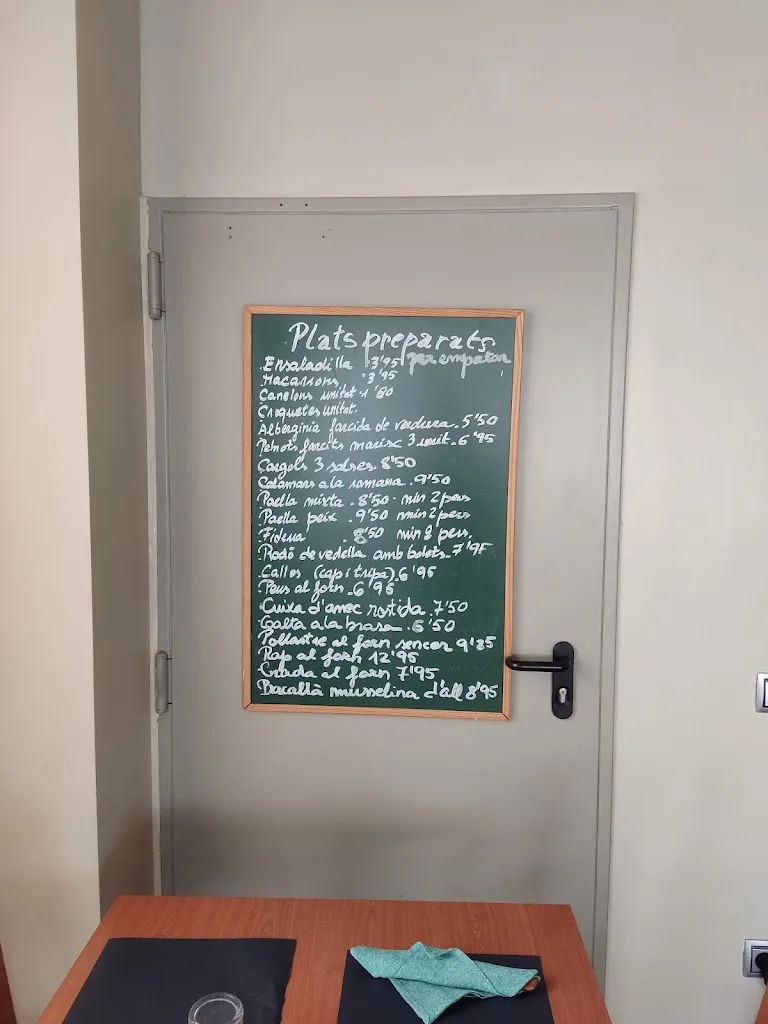 Plats preparats
per emportar
Ensaladilla 3'95
Macarrons 3'95
Canelons unitat 1'80
Croquetes unitat.
Alberginia farcida de verdura. 5'50
Pebrots farcits marisc 3 unit. 6'95
Cargols 3 salses. 8'50
Calamars a la romana. 9'50
Paella mixta. 8'50. min 2 pers
Paella peix. 9'50 min 2 pers
Fideua. 8'50 min 2 pers.
Rodó de vedella amb bolets. 7'95
Callos (cap i tripa). 6'95
Peus al forn. 6'95
Cuixa d'anec rostida. 7'50
Galta a la brasa. 6'50
Pollastre al forn sencer 9'25
Rap al forn 12'95
al forn 7'95
Bacallà musselina d'all 8'95